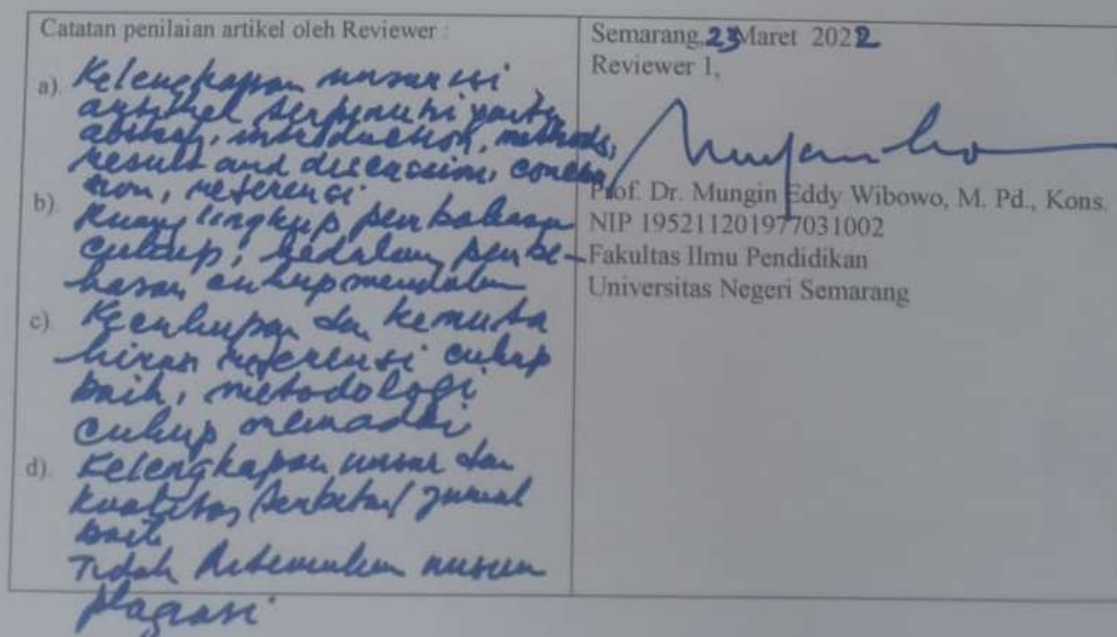 Catatan penilaian artikel oleh Reviewer :
a). Kelengkapan unsur isi
artikel terpenuhi yaitu
abstrak, introduction, methods,
result and discussion, conclu
sion, referensi
b). Ruang lingkup pembahasan
cukup, kedalam pemba-
hasan cukup mendalam
c). Kecukupan dan kemuta
hiran referensi cukup
baik, metodologi
cukup memadai
d). Kelengkapan unsur dan
kualitas penerbit/jurnal
baik
Tidak ditemukan unsur
plagiasi
Semarang, 23 Maret 2022
Reviewer 1,
Prof. Dr. Mungin Eddy Wibowo, M. Pd., Kons.
NIP 195211201977031002
Fakultas Ilmu Pendidikan
Universitas Negeri Semarang